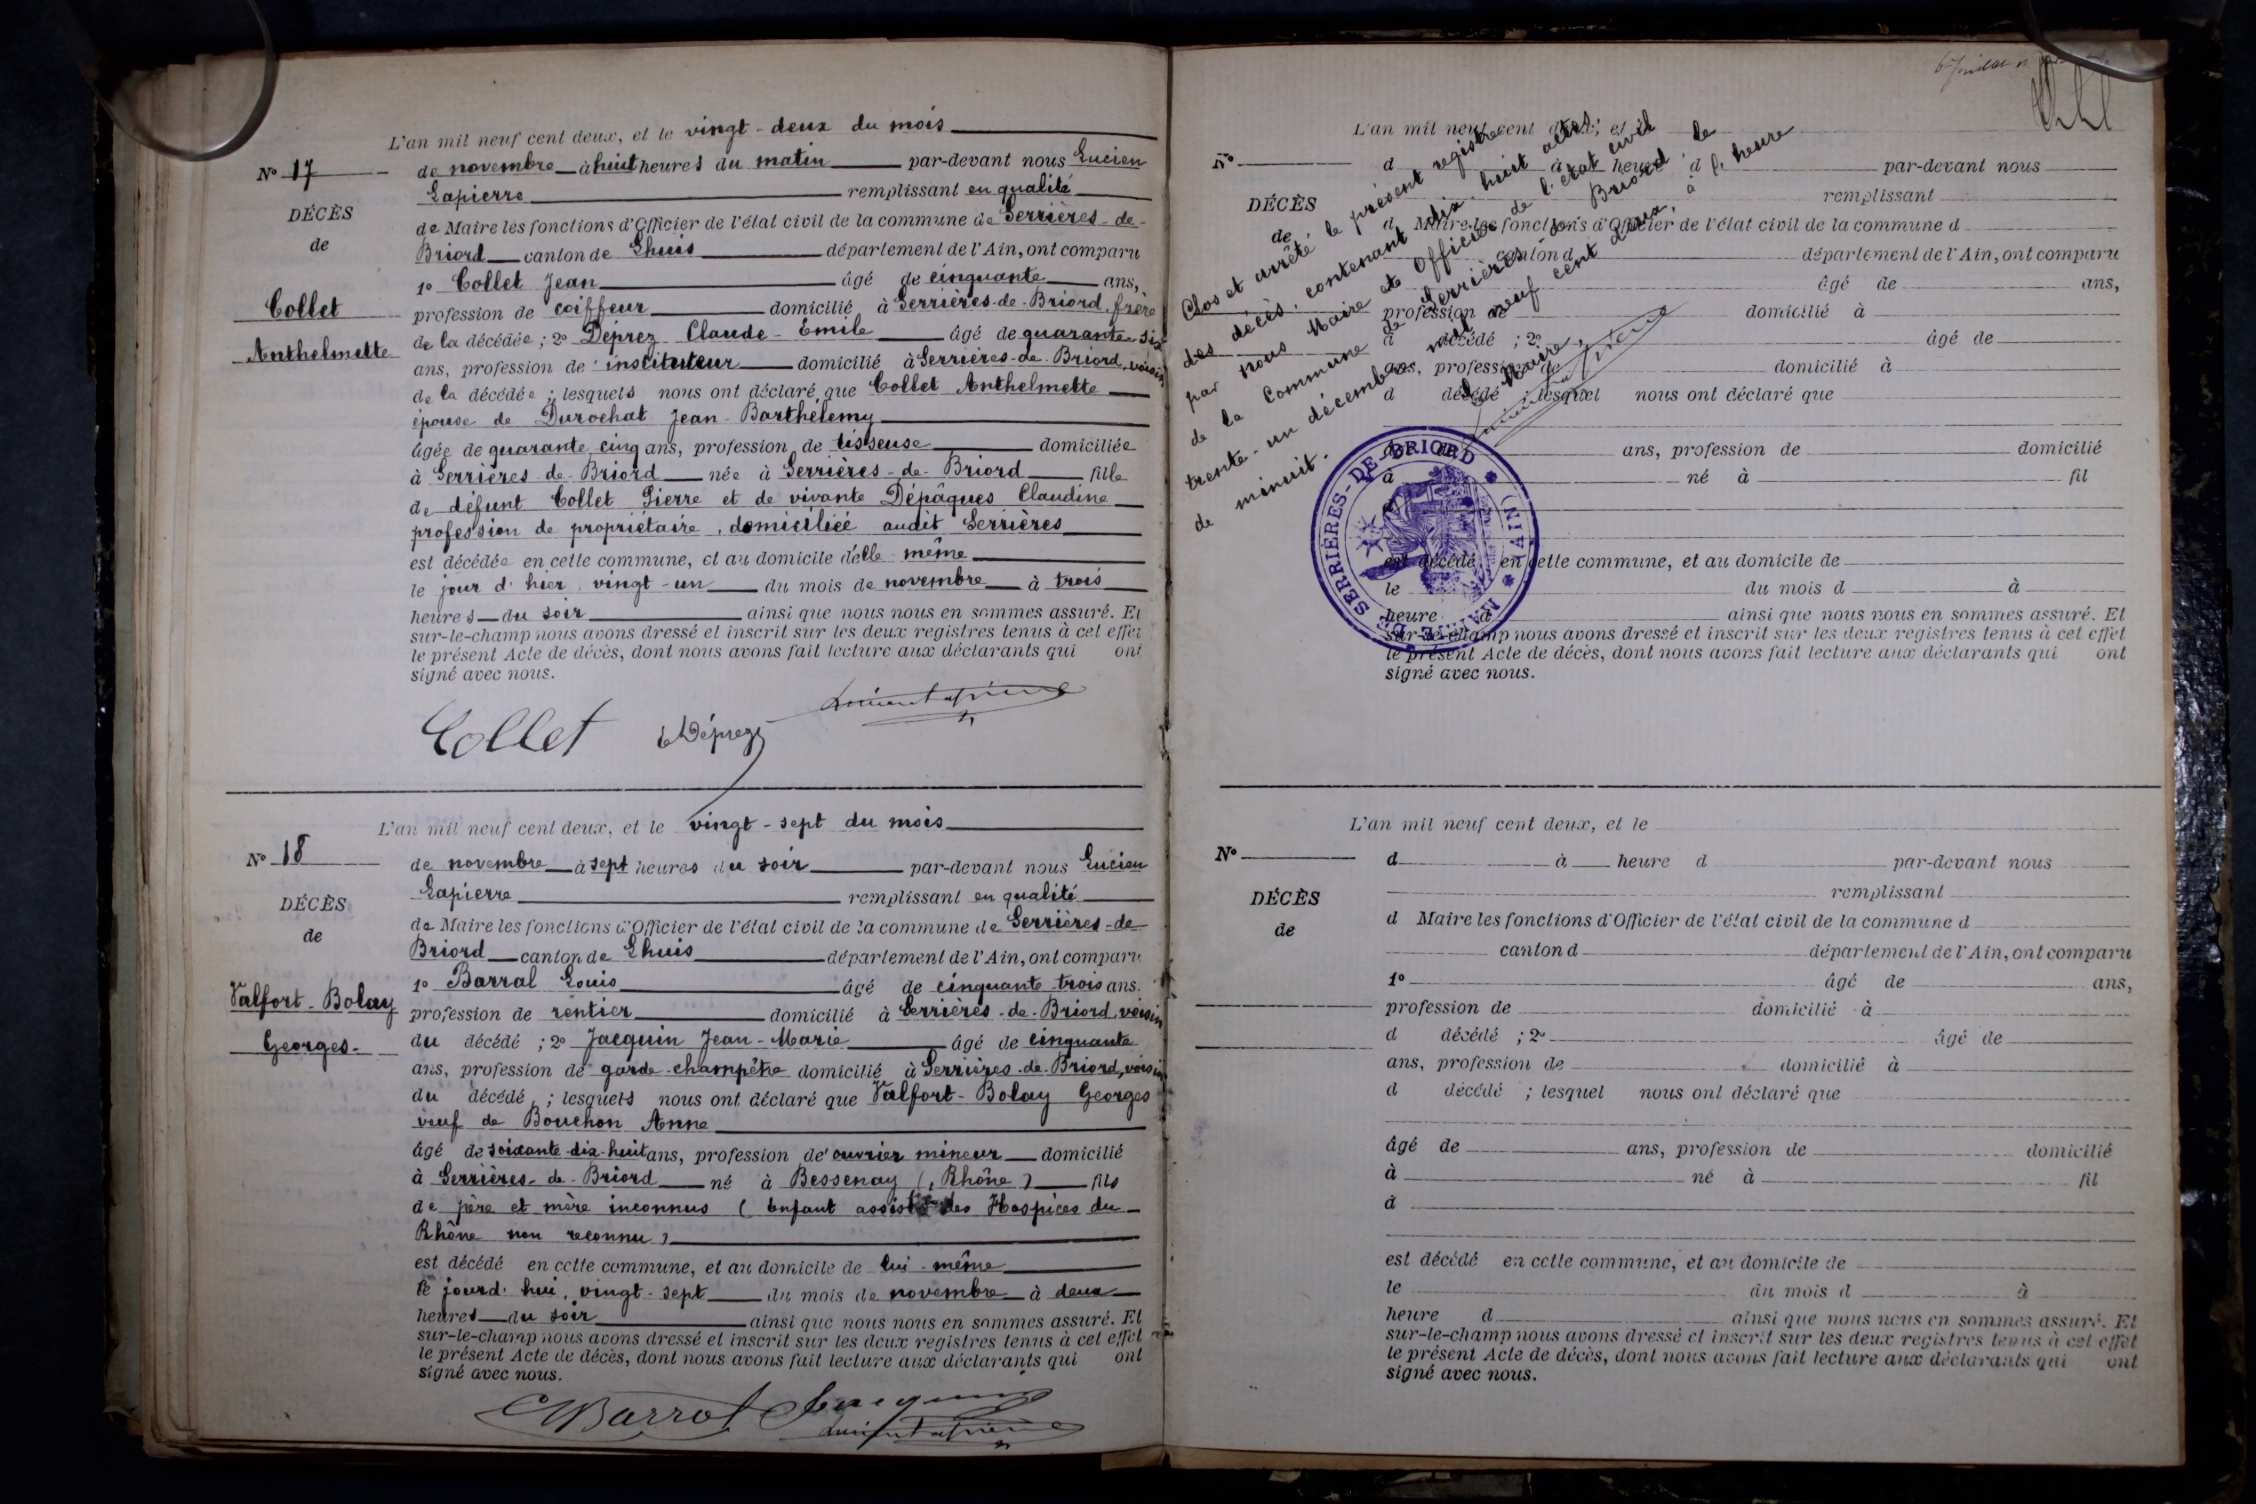 L'an mil neuf cent deux, et le vingt-deux du mois
No 17
de novembre à huit heures du matin par-devant nous Lucien
Lapierre remplissant en qualité
DÉCÈS
de Maire les fonctions d'Officier de l'état civil de la commune de Serrières-de-
de
Briord canton de Lhuis département de l'Ain, ont comparu
1o Collet Jean âgé de cinquante ans,
Collet
profession de coiffeur domicilié à Serrières-de-Briord, frère
Anthelmette
de la décédée ; 2o Déprez Claude-Emile âgé de quarante-six
ans, profession de instituteur domicilié à Serrières-de-Briord, voisin
de la décédée ; lesquels nous ont déclaré que Collet Anthelmette
épouse de Durochat Jean-Barthélemy
âgée de quarante cinq ans, profession de tisseuse domiciliée
à Serrières-de-Briord née à Serrières-de-Briord fille
de défunt Collet Pierre et de vivante Dépâques Claudine
profession de propriétaire, domiciliée audit Serrières
est décédée en cette commune, et au domicile d'elle-même
le jour d'hier, vingt-un du mois de novembre à trois
heures du soir ainsi que nous nous en sommes assuré. Et
sur-le-champ nous avons dressé et inscrit sur les deux registres tenus à cet effet
le présent Acte de décès, dont nous avons fait lecture aux déclarants qui ont
signé avec nous.
Collet Déprez Lucien Lapierre
L'an mil neuf cent deux, et le vingt-sept du mois
No 18
de novembre à sept heures du soir par-devant nous Lucien
Lapierre remplissant en qualité
DÉCÈS
de Maire les fonctions d'Officier de l'état civil de la commune de Serrières-de-
de
Briord canton de Lhuis département de l'Ain, ont comparu
1o Barral Louis âgé de cinquante-trois ans.
Valfort-Bolay
profession de rentier domicilié à Serrières-de-Briord, voisin
Georges
du décédé ; 2o Jacquin Jean-Marie âgé de cinquante
ans, profession de garde-champêtre domicilié à Serrières-de-Briord, voisin
du décédé ; lesquels nous ont déclaré que Valfort-Bolay Georges
veuf de Bouchon Anne
âgé de soixante-dix-huit ans, profession de ouvrier mineur domicilié
à Serrières-de-Briord né à Bessenay (Rhône) fils
de père et mère inconnus (Enfant assisté des Hospices du
Rhône non reconnu)
est décédé en cette commune, et au domicile de lui-même
le jourd'hui, vingt-sept du mois de novembre à deux
heures du soir ainsi que nous nous en sommes assuré. Et
sur-le-champ nous avons dressé et inscrit sur les deux registres tenus à cet effet
le présent Acte de décès, dont nous avons fait lecture aux déclarants qui ont
signé avec nous.
Barral Jacquin Lucien Lapierre
Clos et arrêté le présent registre
des décès, contenant dix-huit actes,
par nous Maire et Officier de l'état civil
de la Commune de Serrières-de-Briord, le
trente-un décembre mil neuf cent deux, à l'heure
de minuit.
Le Maire,
Lucien Lapierre
MAIRIE DE SERRIÈRES-DE-BRIORD (AIN)
L'an mil neuf cent deux, et le
No
d à heure d par-devant nous
remplissant
DÉCÈS
d Maire les fonctions d'Officier de l'état civil de la commune d
de
canton d département de l'Ain, ont comparu
âgé de ans,
profession de domicilié à
d décédé ; 2o âgé de
ans, profession de domicilié à
d décédé ; lesquel nous ont déclaré que
âgé de ans, profession de domicilié
à né à fil
d
est décédé en cette commune, et au domicile de
le du mois d à
heure d ainsi que nous nous en sommes assuré. Et
sur-le-champ nous avons dressé et inscrit sur les deux registres tenus à cet effet
le présent Acte de décès, dont nous avons fait lecture aux déclarants qui ont
signé avec nous.
L'an mil neuf cent deux, et le
No
d à heure d par-devant nous
remplissant
DÉCÈS
d Maire les fonctions d'Officier de l'état civil de la commune d
de
canton d département de l'Ain, ont comparu
1o âgé de ans,
profession de domicilié à
d décédé ; 2o âgé de
ans, profession de domicilié à
d décédé ; lesquel nous ont déclaré que
âgé de ans, profession de domicilié
à né à fil
d
est décédé en cette commune, et au domicile de
le du mois d à
heure d ainsi que nous nous en sommes assuré. Et
sur-le-champ nous avons dressé et inscrit sur les deux registres tenus à cet effet
le présent Acte de décès, dont nous avons fait lecture aux déclarants qui ont
signé avec nous.